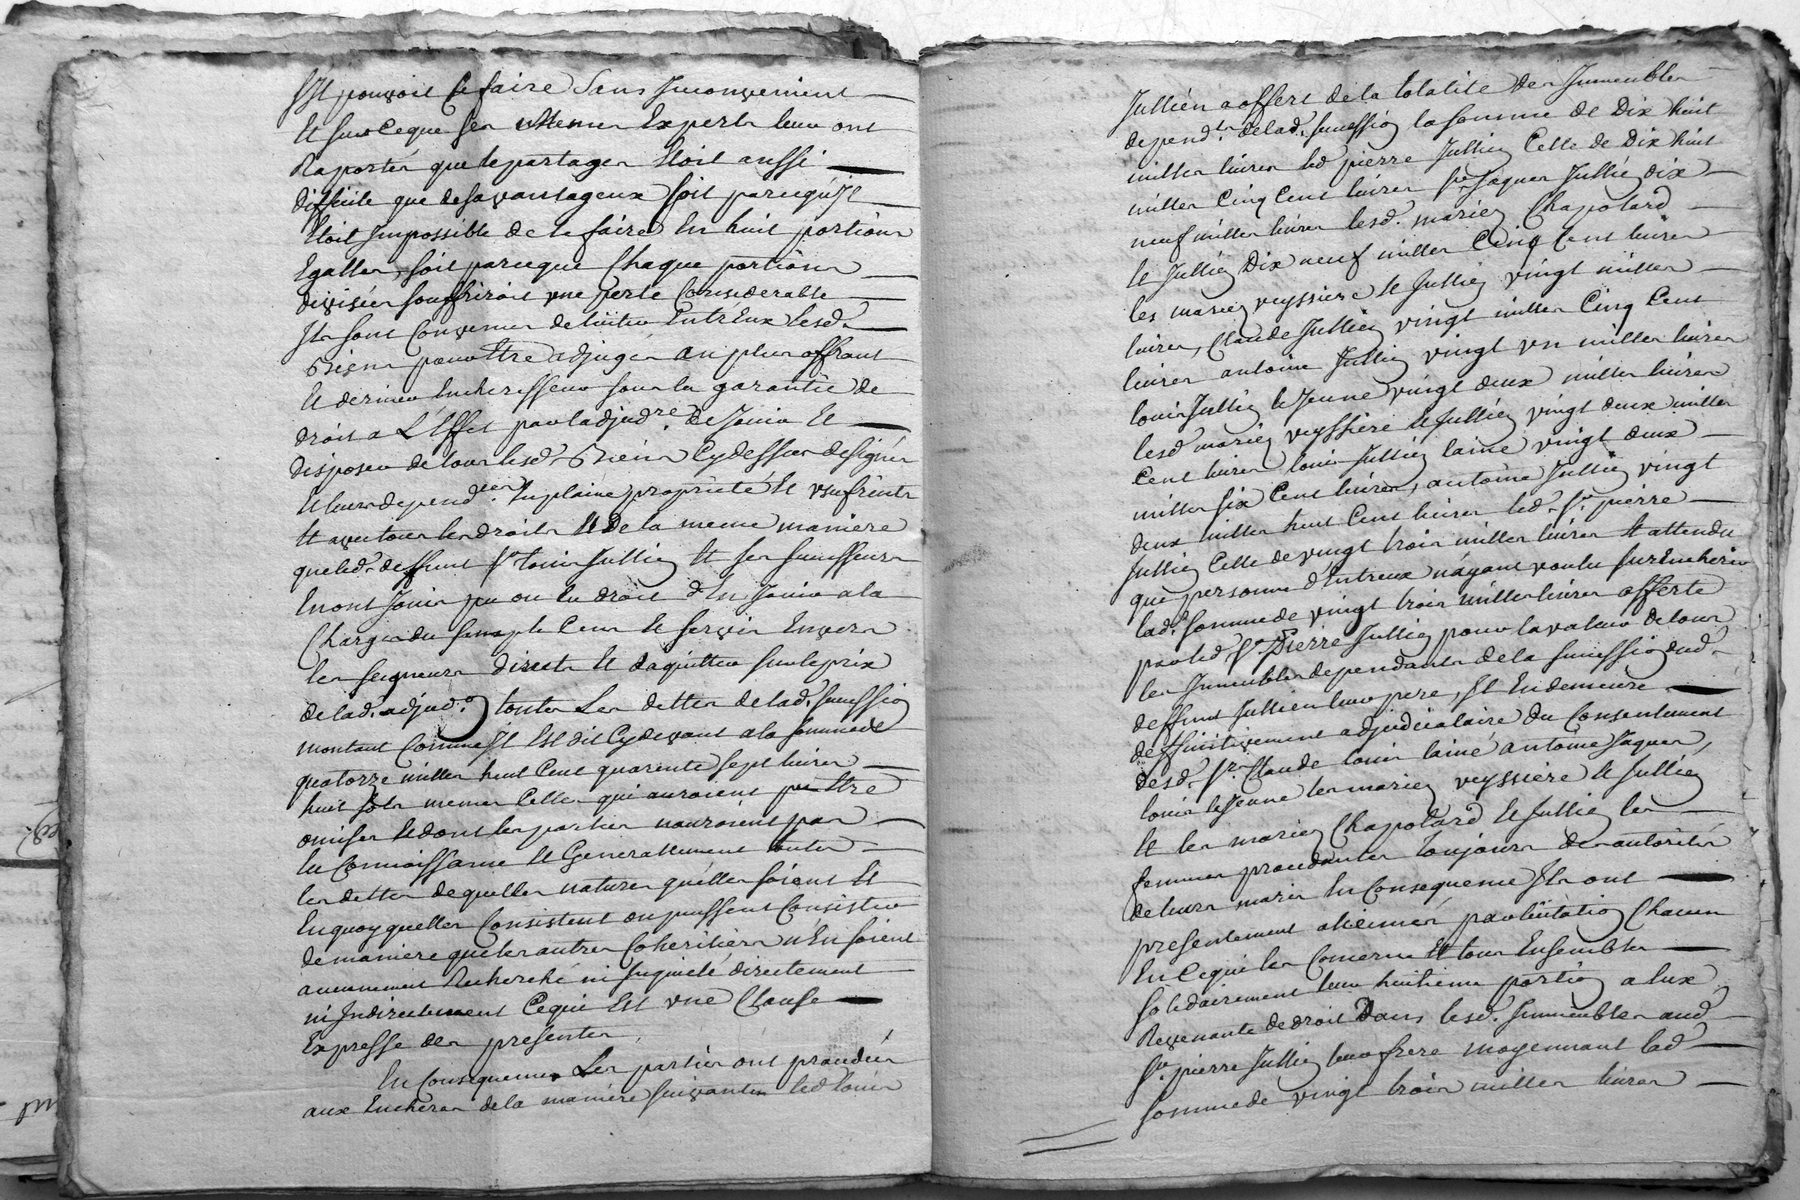 s'Il pouvoit se faire sans Inconvenient
Et sur ce que ses mêmes Experts leur ont
Raporté que le partage Etoit aussi
difficile que desavantageux soit parcequ'Il
Etoit Impossible de le faire En huit portions
Egalles, soit parceque Chaque portions
divisées souffriroit une perte Considerable
Ils sont Convenus de liciter Entr'Eux lesd.
Biens pour Etre adjugés au plus offrant
Et dernier Encherisseur sous la garantie de
droit a L'Effet par ladjudre. de Jouir Et
disposer de tous lesd. Biens Cy dessus designés
Et leurs dependces. En plaine proprieté Et usufruits
Et avec tous les droits Et De la meme maniere
que led. deffunt Sr. Louis Jullien Et ses successeurs
En ont Jouis pu ou Eu droit d'En Jouir a la
Charge du simple Cens Et servis Envers
les seigneurs directs Et daquitter sur le prix
de lad. adjudon toutes Les dettes de lad. succession
montant Comme Il Est dit Cy devant a la somme de
quatorze milles huit Cent quarente sept livres
huit sols memes Celles qui auroient pu Etre
omises Et dont les parties nauroient pas
Eu Connoissance Et Generallement toutes
les dettes de quelles natures quelles soient Et
En quoy quelles Consistent ou puissent Consister
de maniere que les autres Coheritiers n'En soient
aucunement Recherché ni Inquieté directement
ni Indirectement Ce qui Est une Clause
Expresse des presentes,
En Consequence Les parties ont procedés
aux Encheres de la maniere suivantes led. Louis
Jullien a offert de la totalité des Immeubles
dependts. de lad. succession la somme de Dix huit
milles livres led pierre Jullien Celle de Dix huit
milles Cinq Cent livres Sr. Jaques Jullien dix
neuf milles livres lesd. mariés Chapotard
Et Jullien Dix neuf milles Cinq Cent livres
les mariés veyssiere Et Jullien vingt milles
livres, Claude Jullien vingt milles Cinq Cent
livres antoine Jullien vingt un milles livres
louis Jullien le Jeune vingt deux milles livres
lesd mariés veyssiere Et Jullien vingt deux milles
Cent livres louis Jullien lainé vingt deux
milles six Cent livres, antoine Jullien vingt
deux milles huit Cent livres led. Sr. pierre
Jullien Celle de vingt trois milles livres Et attendu
que personne d'Entreux nayant voulu surEncherir
lad. somme de vingt trois milles livres offerte
par led. Sr. Pierre Jullien pour la valeur de tous
les Immeubles dependants de la succession dud.
deffunt Jullien leur pere, Il En demeure
deffinitivement adjudicataire du Consentement
desd. Srs. Claude louis lainé antoine Jaques,
louis le Jeune les mariés veyssiere Et Jullien
Et les mariés Chapotard Et Jullien les
femmes procedantes toujours des autorités
de leurs maris En Consequence Ils ont
presentement alienné par licitation Chacun
En Ce qui les Concerne Et tous Ensembles
solidairement leur huitieme portion a Eux
Revenante de droit Dans lesd. Immeubles aud.
Sr. pierre Jullien leur frere moyennant lad.
somme de vingt trois milles livres